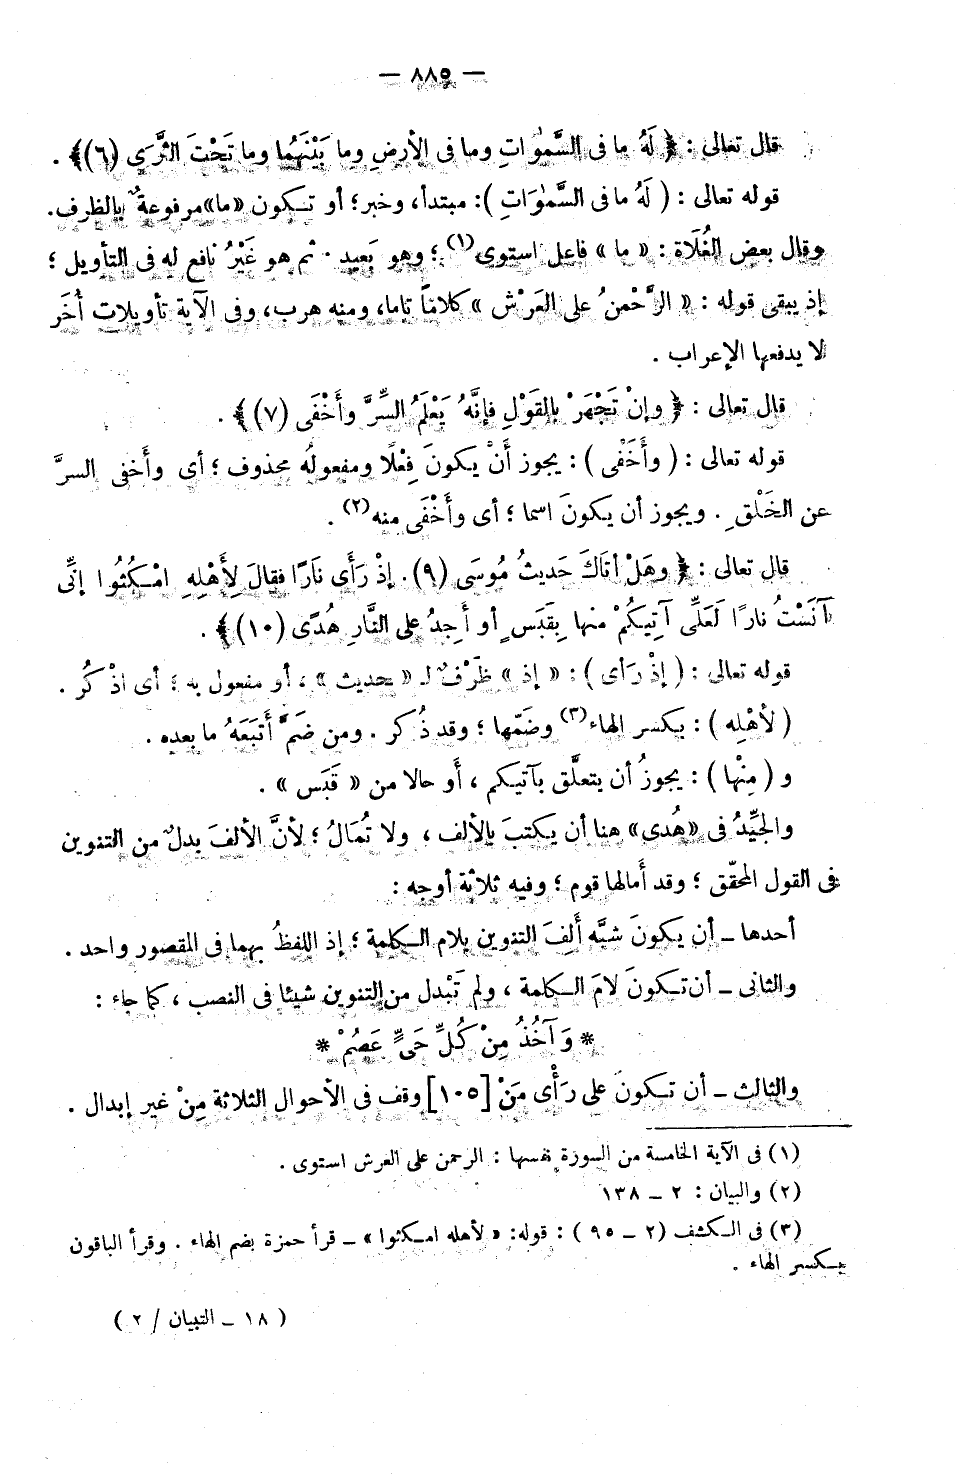 — ٨٨٥ —
قال تعالى : ﴿ لَهُ ما فى السَّمٰواتِ وما فى الأرضِ وما بَيْنَهُما وما تَحْتَ الثَّرَى (٦)﴾ .
قوله تعالى : ( لَهُ ما فى السَّمٰوَاتِ ): مبتدأ، وخبر؛ أو تـكون «ما» مرفوعةً بالظرف.
وقال بعض الغُلَاة : « ما » فاعل استوى(١) ؛ وهو بَعيد . ثم هو غَيْرُ نافع له فى التأويل ؛
إذ يبقى قوله : « الرَّحْمنُ على العَرْش » كلاماً تاما، ومنه هرب، وفى الآية تأويلات أُخَر
لا يدفعها الإعراب .
قال تعالى : ﴿ وإنْ تَجْهَرْ بالقَوْلِ فإنَّهُ يَعْلَمُ السِّرَّ وأَخْفَى (٧) ﴾ .
قوله تعالى : ( وأَخْفَى ) : يجوز أَنْ يكونَ فِعْلًا ومفعولُه محذوف ؛ أى وأَخفى السرَّ
عن الخَلْقِ . ويجوز أن يكونَ اسما ؛ أى وأَخْفَى منه(٢) .
قال تعالى : ﴿ وهَلْ أتَاكَ حَديثُ مُوسَى (٩). إذْ رَأَى نَارًا فقالَ لِأَهْلِهِ امْـكُثُوا إنِّى
آنَسْتُ نارًا لَعَلِّى آتِيكُمْ منها بِقَبَسٍ أو أَجِدُ على النَّارِ هُدًى (١٠)﴾ .
قوله تعالى : ( إذْ رَأى ) : « إذ » ظَرْفٌ لـ « حديث » ، أو مفعول به ؛ أى اذْ كُر .
( لأهْلِه ) : بكسر الهاء(٣) وضَمّها ؛ وقد ذُكر . ومن ضَمَّ أَتبَعَهُ ما بعده .
و ( مِنْها ) : يجوزُ أن يتعلَّق بآتيكم ، أَو حالا من « قَبَس » .
والجيِّدُ فى «هُدى» هنا أن يكتبَ بالألف ، ولا تُمَالُ ؛ لأنَّ الألفَ بدلٌ من التنوين
فى القول المحقّق ؛ وقد أَمالها قوم ؛ وفيه ثلاثة أوجه :
أحدها ـ أن يكونَ شبَّه أَلِفَ التنوين بلام الـكلمة ؛ إذ اللفظُ بهما فى المقصور واحد .
والثانى ـ أن تـكونَ لامَ الـكلمة ، ولم تُبْدل من التنوين شيئا فى النصب ، كما جاء :
* وَآخُذُ مِنْ كُلِّ حَىٍّ عَصُمْ *
والثالث ـ أن تـكونَ على رَأْى مَنْ [١٠٥] وقف فى الأحوال الثلاثة مِنْ غير إبدال .
(١) فى الآية الخامسة من السورة نفسها : الرحمن على العرش استوى .
(٢) والبيان : ٢ ـ ١٣٨
(٣) فى الـكشف (٢ ـ ٩٥ ) : قوله: « لأهله امـكثوا » ـ قرأ حمزة بضم الهاء . وقرأ الباقون
بـكسر الهاء .
( ١٨ ـ التبيان / ٢ )